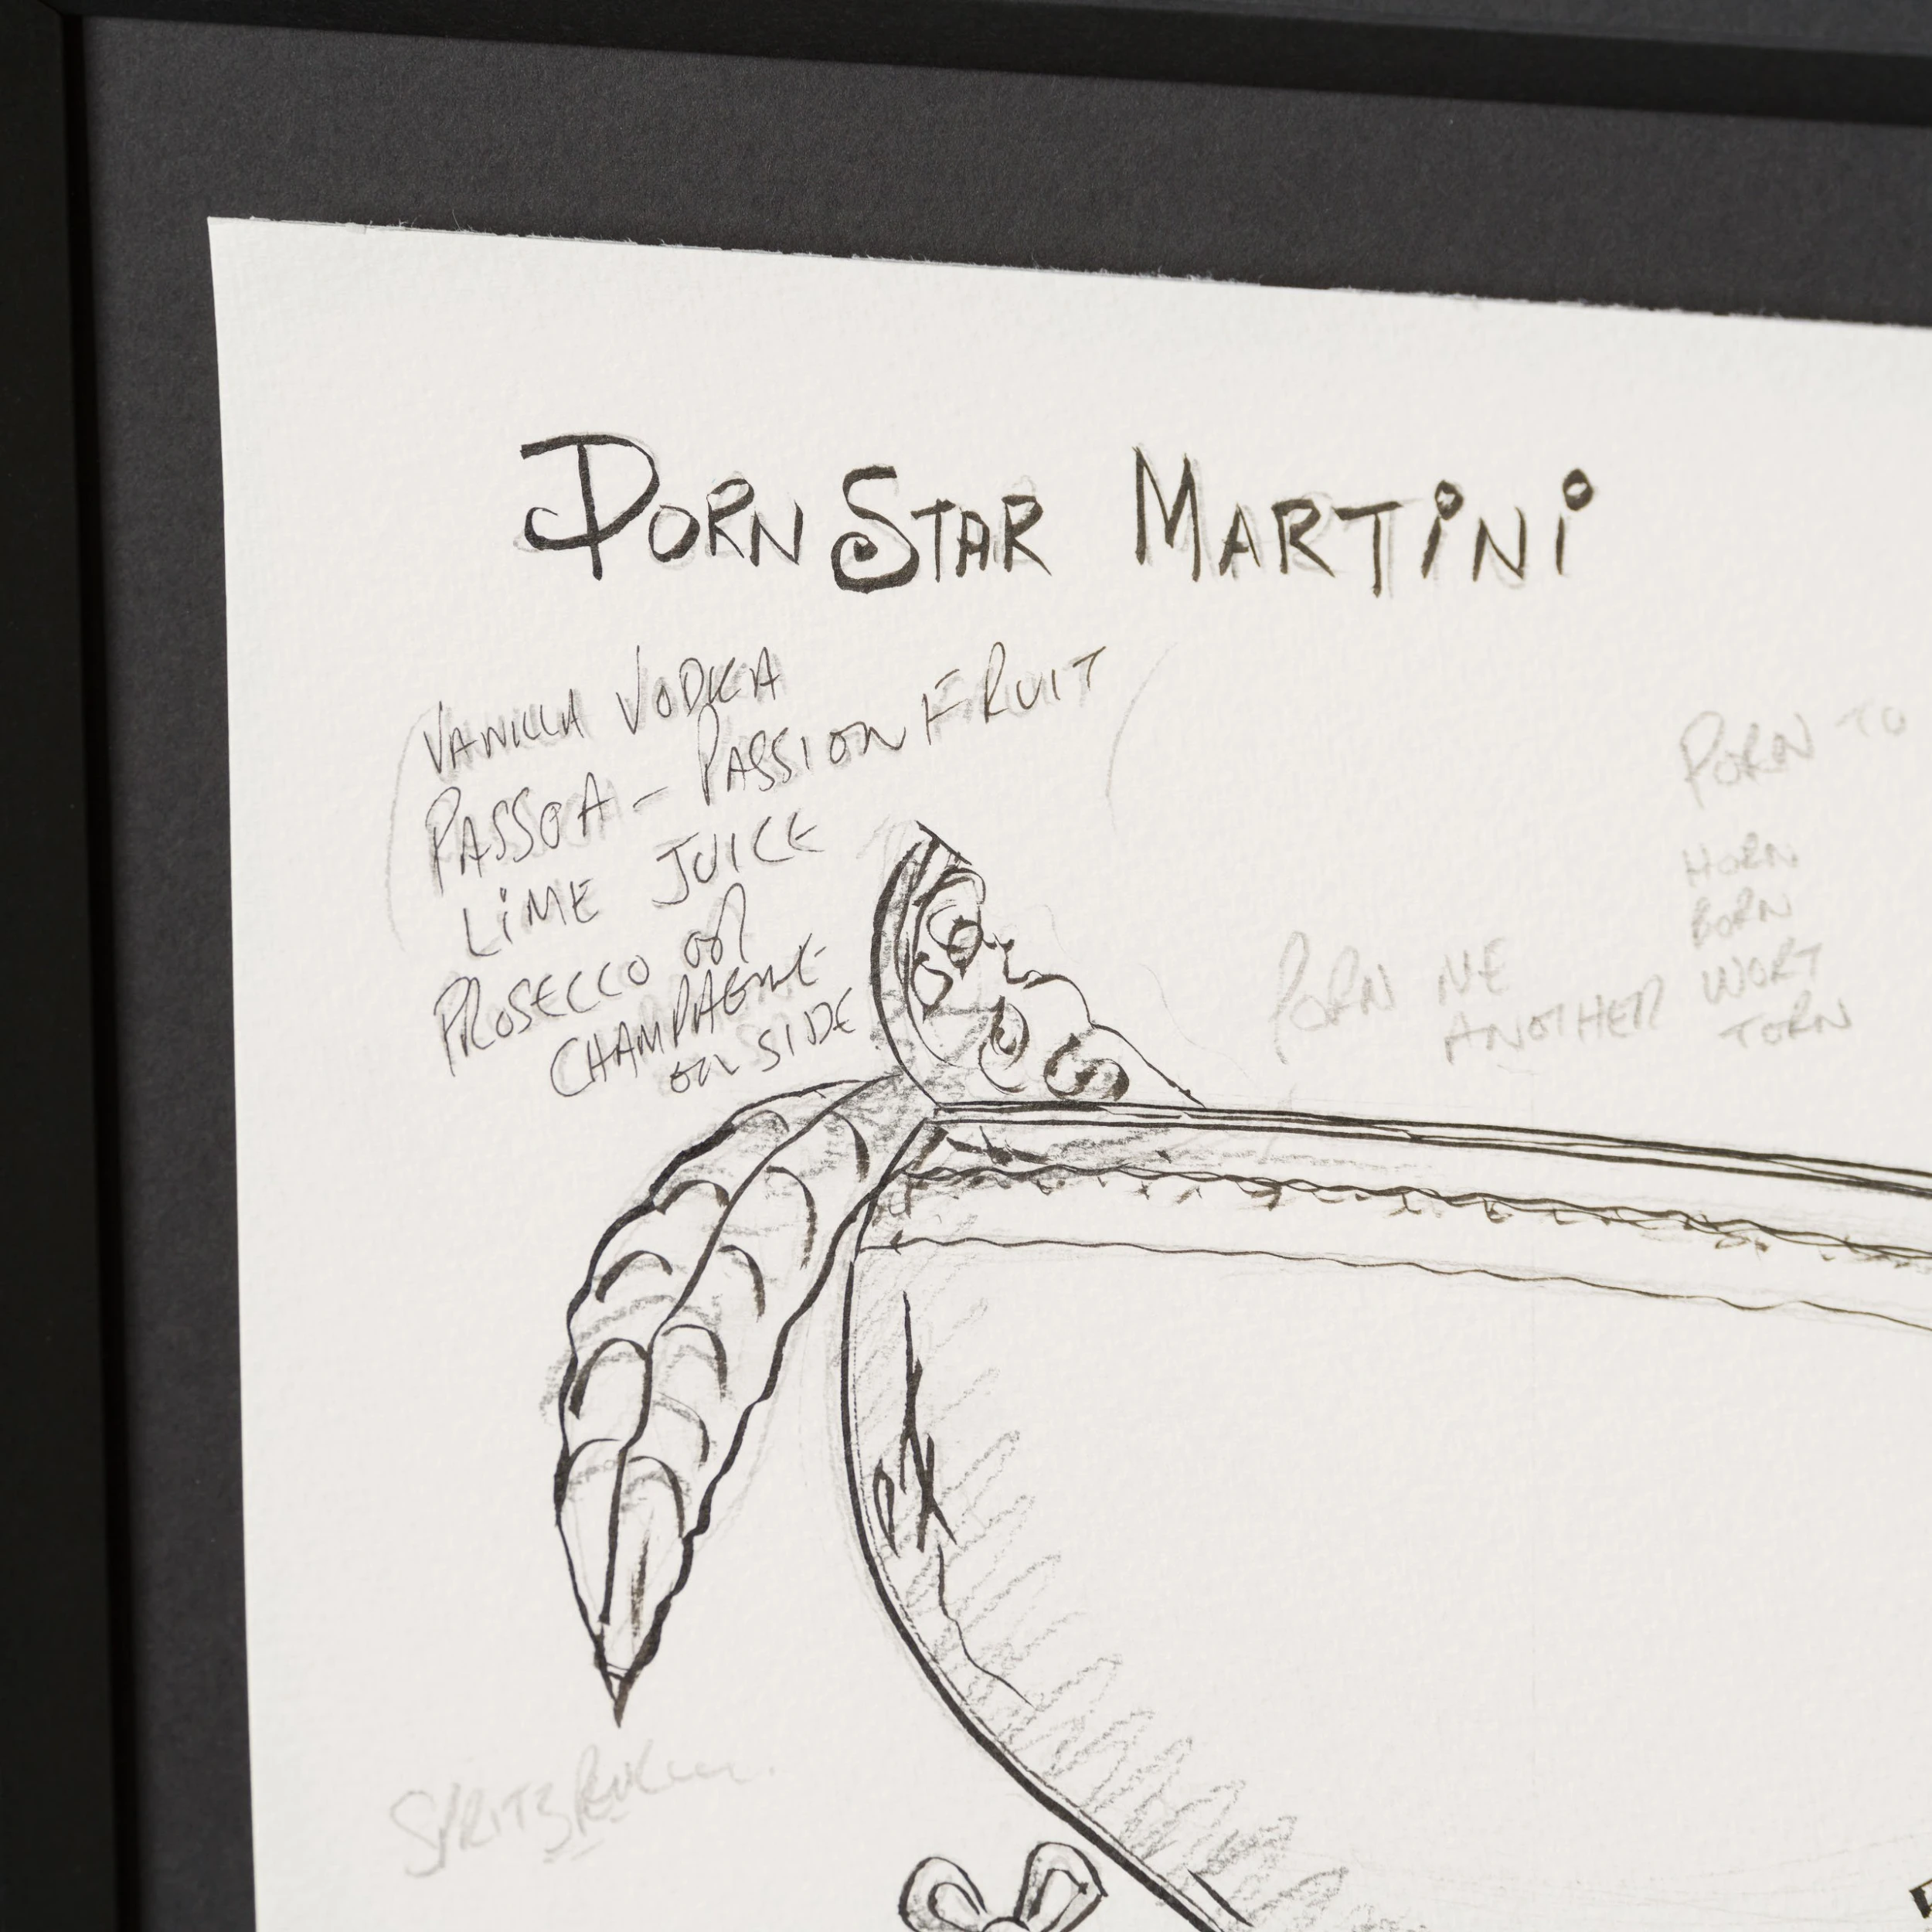 PORN STAR MARTINI
VANILLA VODKA
PASSOA - PASSION FRUIT
LIME JUICE
PROSECCO OR
CHAMPAGNE
ON SIDE
PORN TO
HORN
BORN
WORT
TORN
PORN ME
ANOTHER
SPRITZ